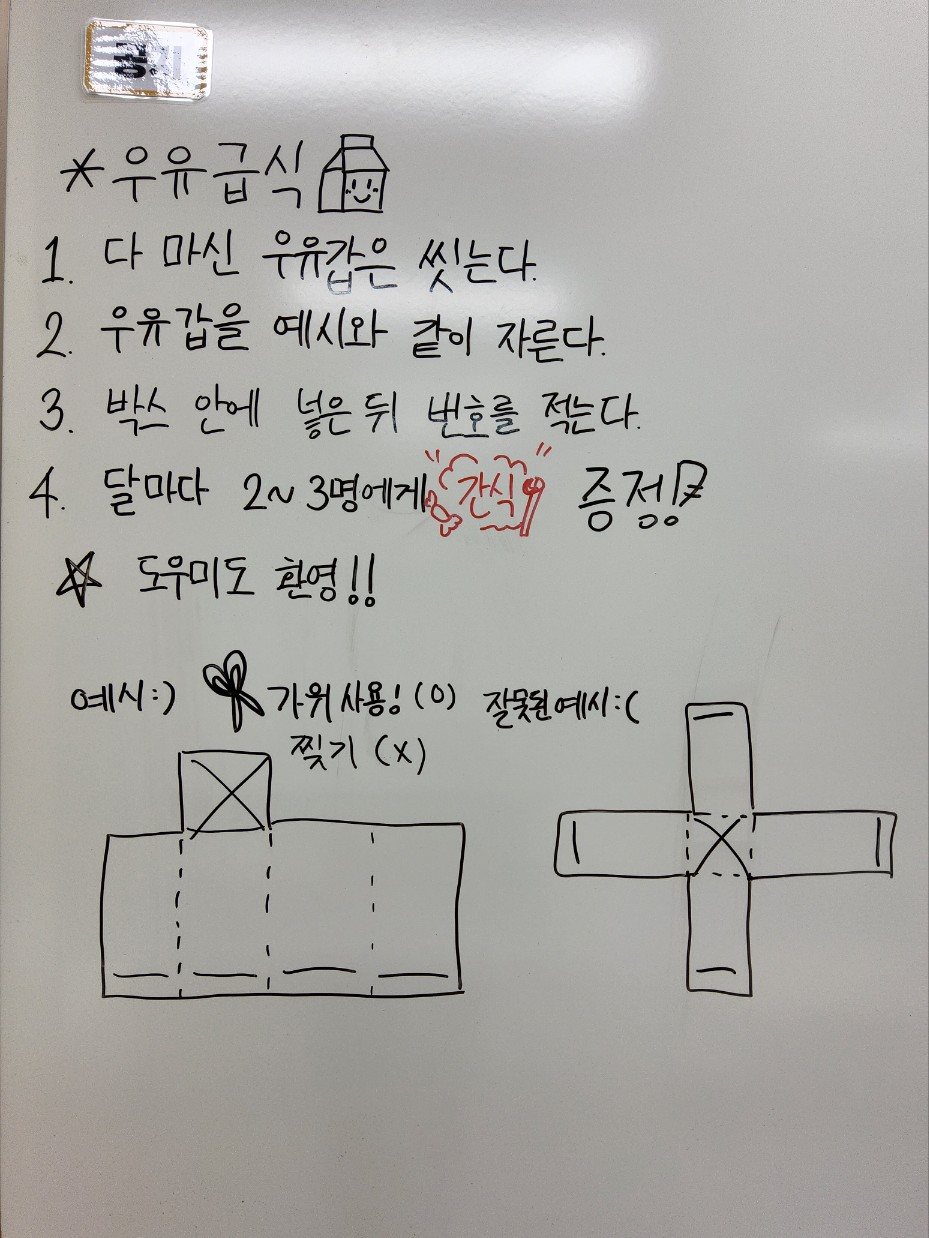 * 우유급식
1. 다 마신 우유갑은 씻는다.
2. 우유갑을 예시와 같이 자른다.
3. 박스 안에 넣은 뒤 번호를 적는다.
4. 달마다 2~3명에게 "간식" 증정!
☆ 도우미도 환영!!
예시:) 가위 사용! (O) 잘못된 예시:(
찢기 (X)